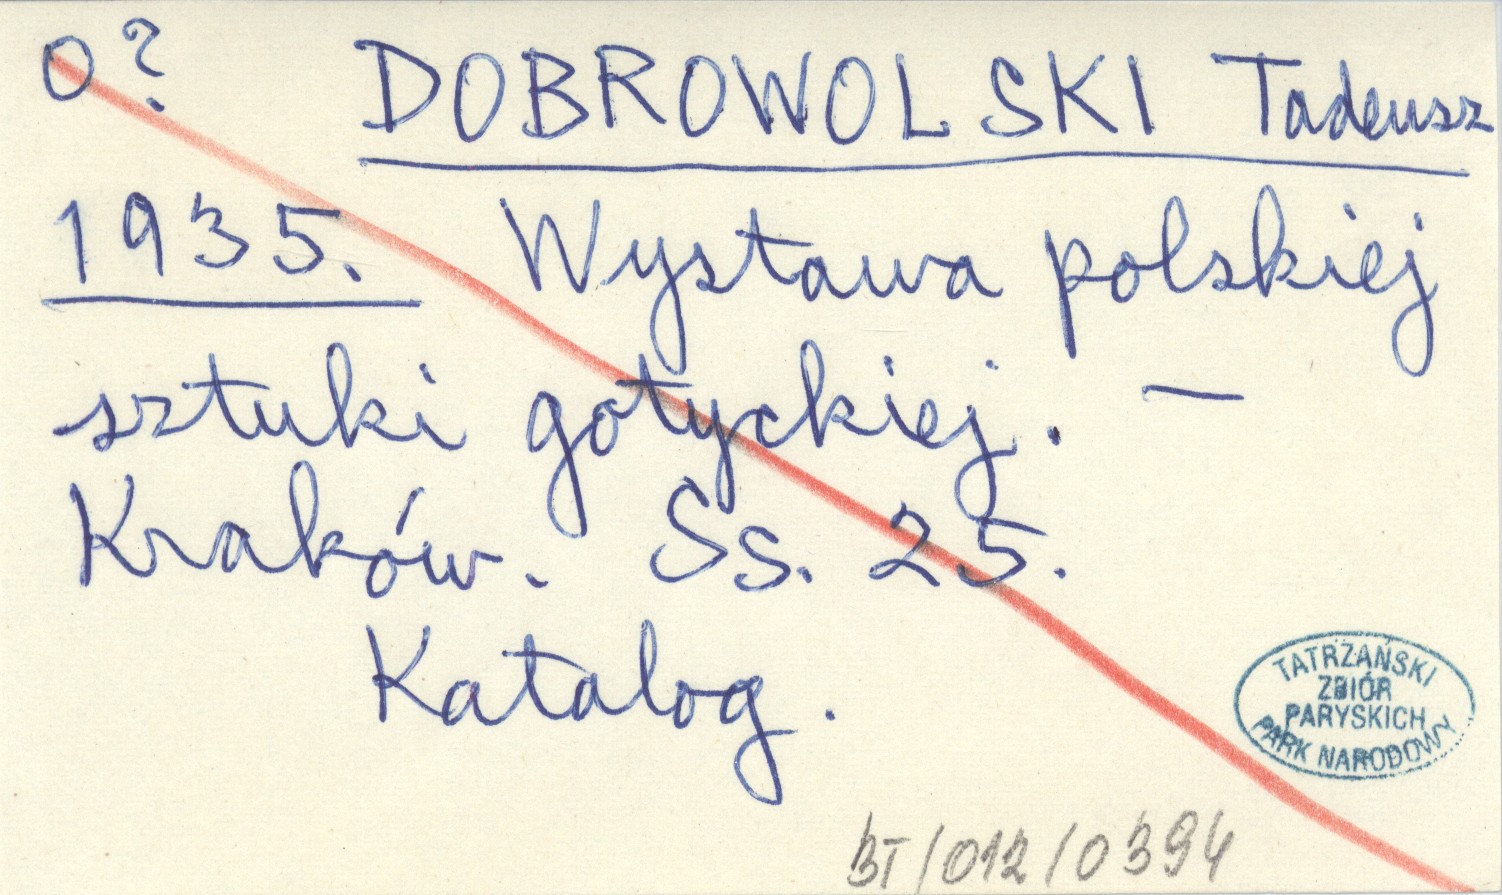 o? DOBROWOLSKI Tadeusz
1935. Wystawa polskiej
sztuki gotyckiej. —
Kraków. Ss. 25.
Katalog.
TATRZAŃSKI
ZBIÓR
PARYSKICH
PARK NARODOWY
BT/012/0394